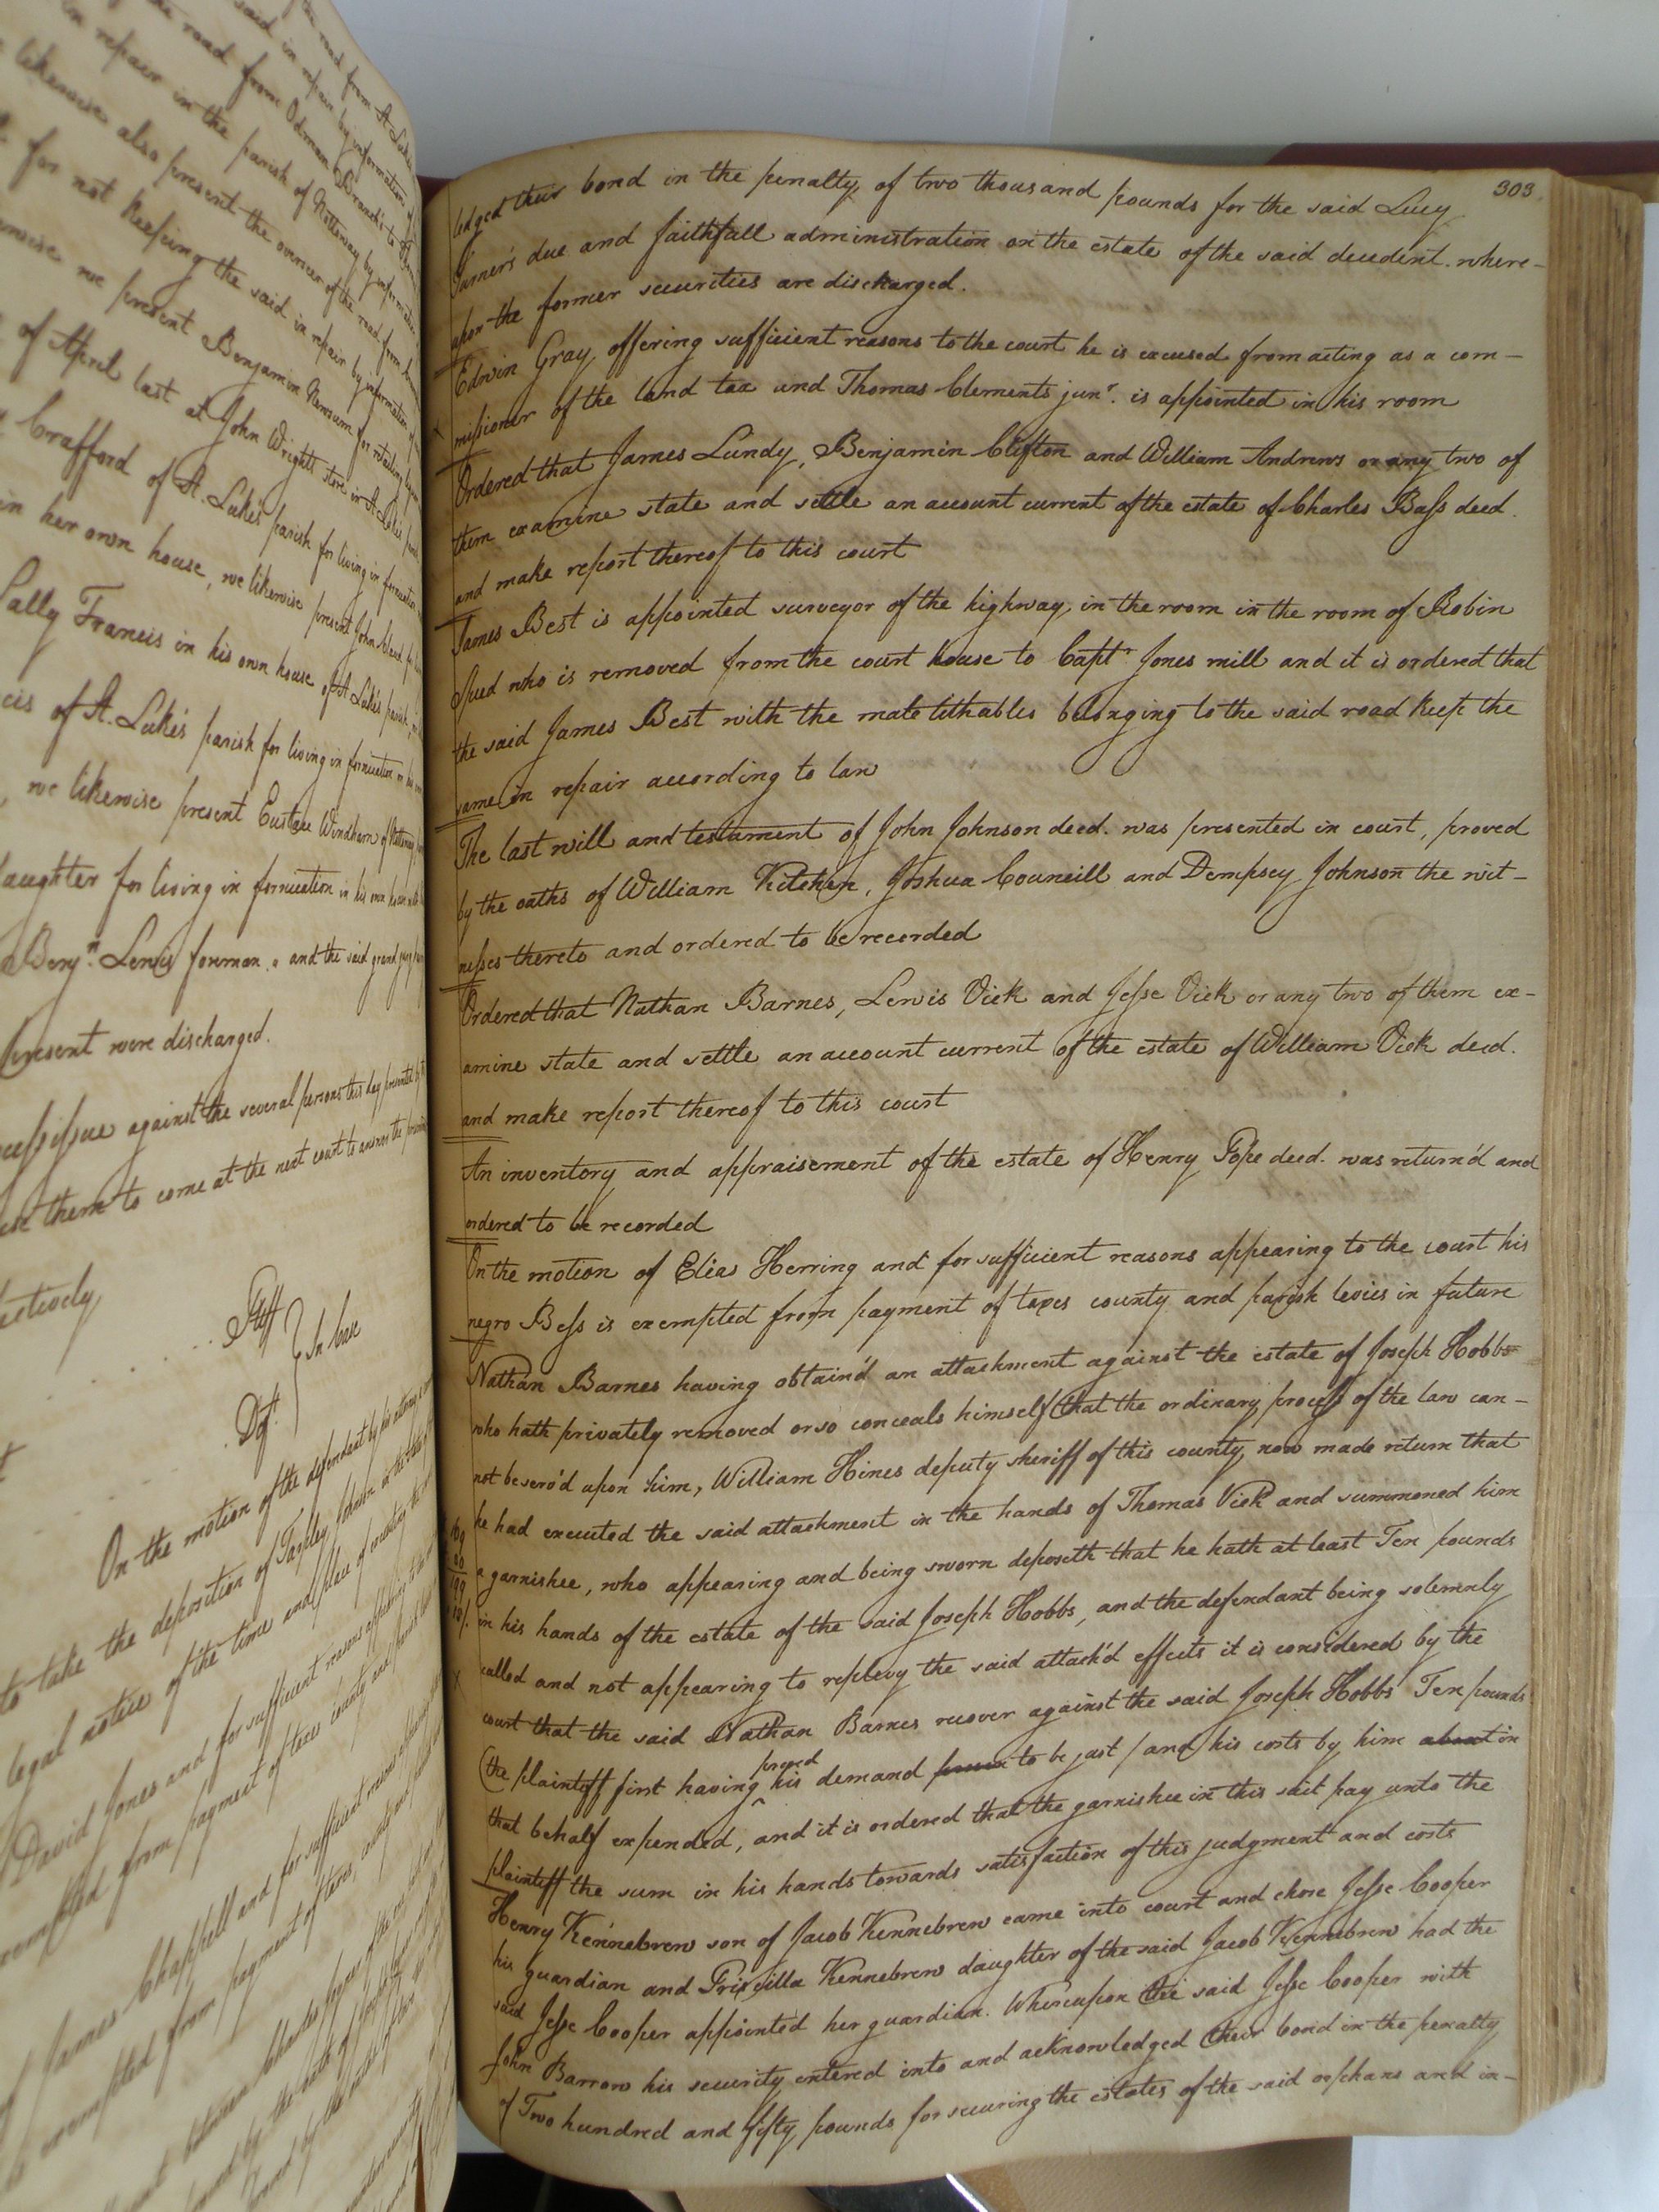 the road from St. Lukes
said in repair by information of
the road from Odman Brand's to
in repair in the parish of Nottoway by information
likewise also present the overseer of the road from
for not keeping the said in repair by information of
we present Benjamin Newsum for retailing
of April last at John Wrights store in St. Luke's
Crafford of St. Luke's parish for living in fornication
in her own house, we likewise present John
Sally Francis in his own house of St. Luke's parish,
cis of St. Luke's parish for living in fornication in his
, we likewise present Eustace Windham of Nottoway
daughter for living in fornication in his own house with
Benjn. Lewis foreman. and the said grand jury
present were discharged.
issue against the several persons this day presented by
them to come at the next court to answer the
Pltf
Dft.
In case
On the motion of the defendant by his attorney
to take the deposition of Tapley Johnson in the state of
legal notice of the time and place of executing the
David Jones and for sufficient reasons appearing to the
exempted from payment of taxes county and parish
James Chappell and for sufficient reasons appearing
is exempted from payment of taxes, county
between Charles
303.
ledged their bond in the penalty of two thousand pounds for the said Lucy
Turner's due and faithfull administration on the estate of the said decedent. where-
upon the former securities are discharged.
Edwin Gray offering sufficient reasons to the court he is excused from acting as a com-
missioner of the land tax and Thomas Clements junr. is appointed in his room
Ordered that James Lundy, Benjamin Clifton and William Andrews or any two of
them examine state and settle an account current of the estate of Charles Bass decd.
and make report thereof to this court
James Best is appointed surveyor of the highway in the room in the room of Robin
Speed who is removed from the court house to Captr Jones mill and it is ordered that
the said James Best with the male tithables belonging to the said road keep the
same in repair according to law
The last will and testament of John Johnson decd. was presented in court, proved
by the oaths of William Kitchen, Joshua Councill and Dempsey Johnson the wit-
nesses thereto and ordered to be recorded
Ordered that Nathan Barnes, Lewis Vick and Jesse Vick or any two of them ex-
amine state and settle an account current of the estate of William Vick decd.
and make report thereof to this court
An inventory and appraisement of the estate of Henry Pope decd. was return'd and
ordered to be recorded
On the motion of Elias Herring and for sufficient reasons appearing to the court his
negro Bess is exempted from payment of taxes county and parish levies in future
Nathan Barnes having obtain'd an attachment against the estate of Joseph Hobbs
who hath privately removed or so conceals himself that the ordinary process of the law can-
not be serv'd upon him, William Hines deputy sheriff of this county now made return that
he had executed the said attachment in the hands of Thomas Vick and summoned him
a garnishee, who appearing and being sworn deposeth that he hath at least Ten pounds
in his hands of the estate of the said Joseph Hobbs, and the defendant being solemnly
called and not appearing to replevy the said attach'd effects it is considered by the
court that the said Nathan Barnes recover against the said Joseph Hobbs Ten pounds
(the plaintiff first having proved his demand to be just / and his costs by him about in
that behalf expended, and it is ordered that the garnishee in this suit pay unto the
plaintiff the sum in his hands towards satisfaction of this judgment and costs
Henry Kennebrew son of Jacob Kennebrew came into court and chose Jesse Cooper
his guardian and Priscilla Kennebrew daughter of the said Jacob Kennebrew had the
said Jesse Cooper appointed her guardian. Whereupon the said Jesse Cooper with
John Barrow his security entered into and acknowledged their bond in the penalty
of Two hundred and fifty pounds for securing the estates of the said orphans and in-